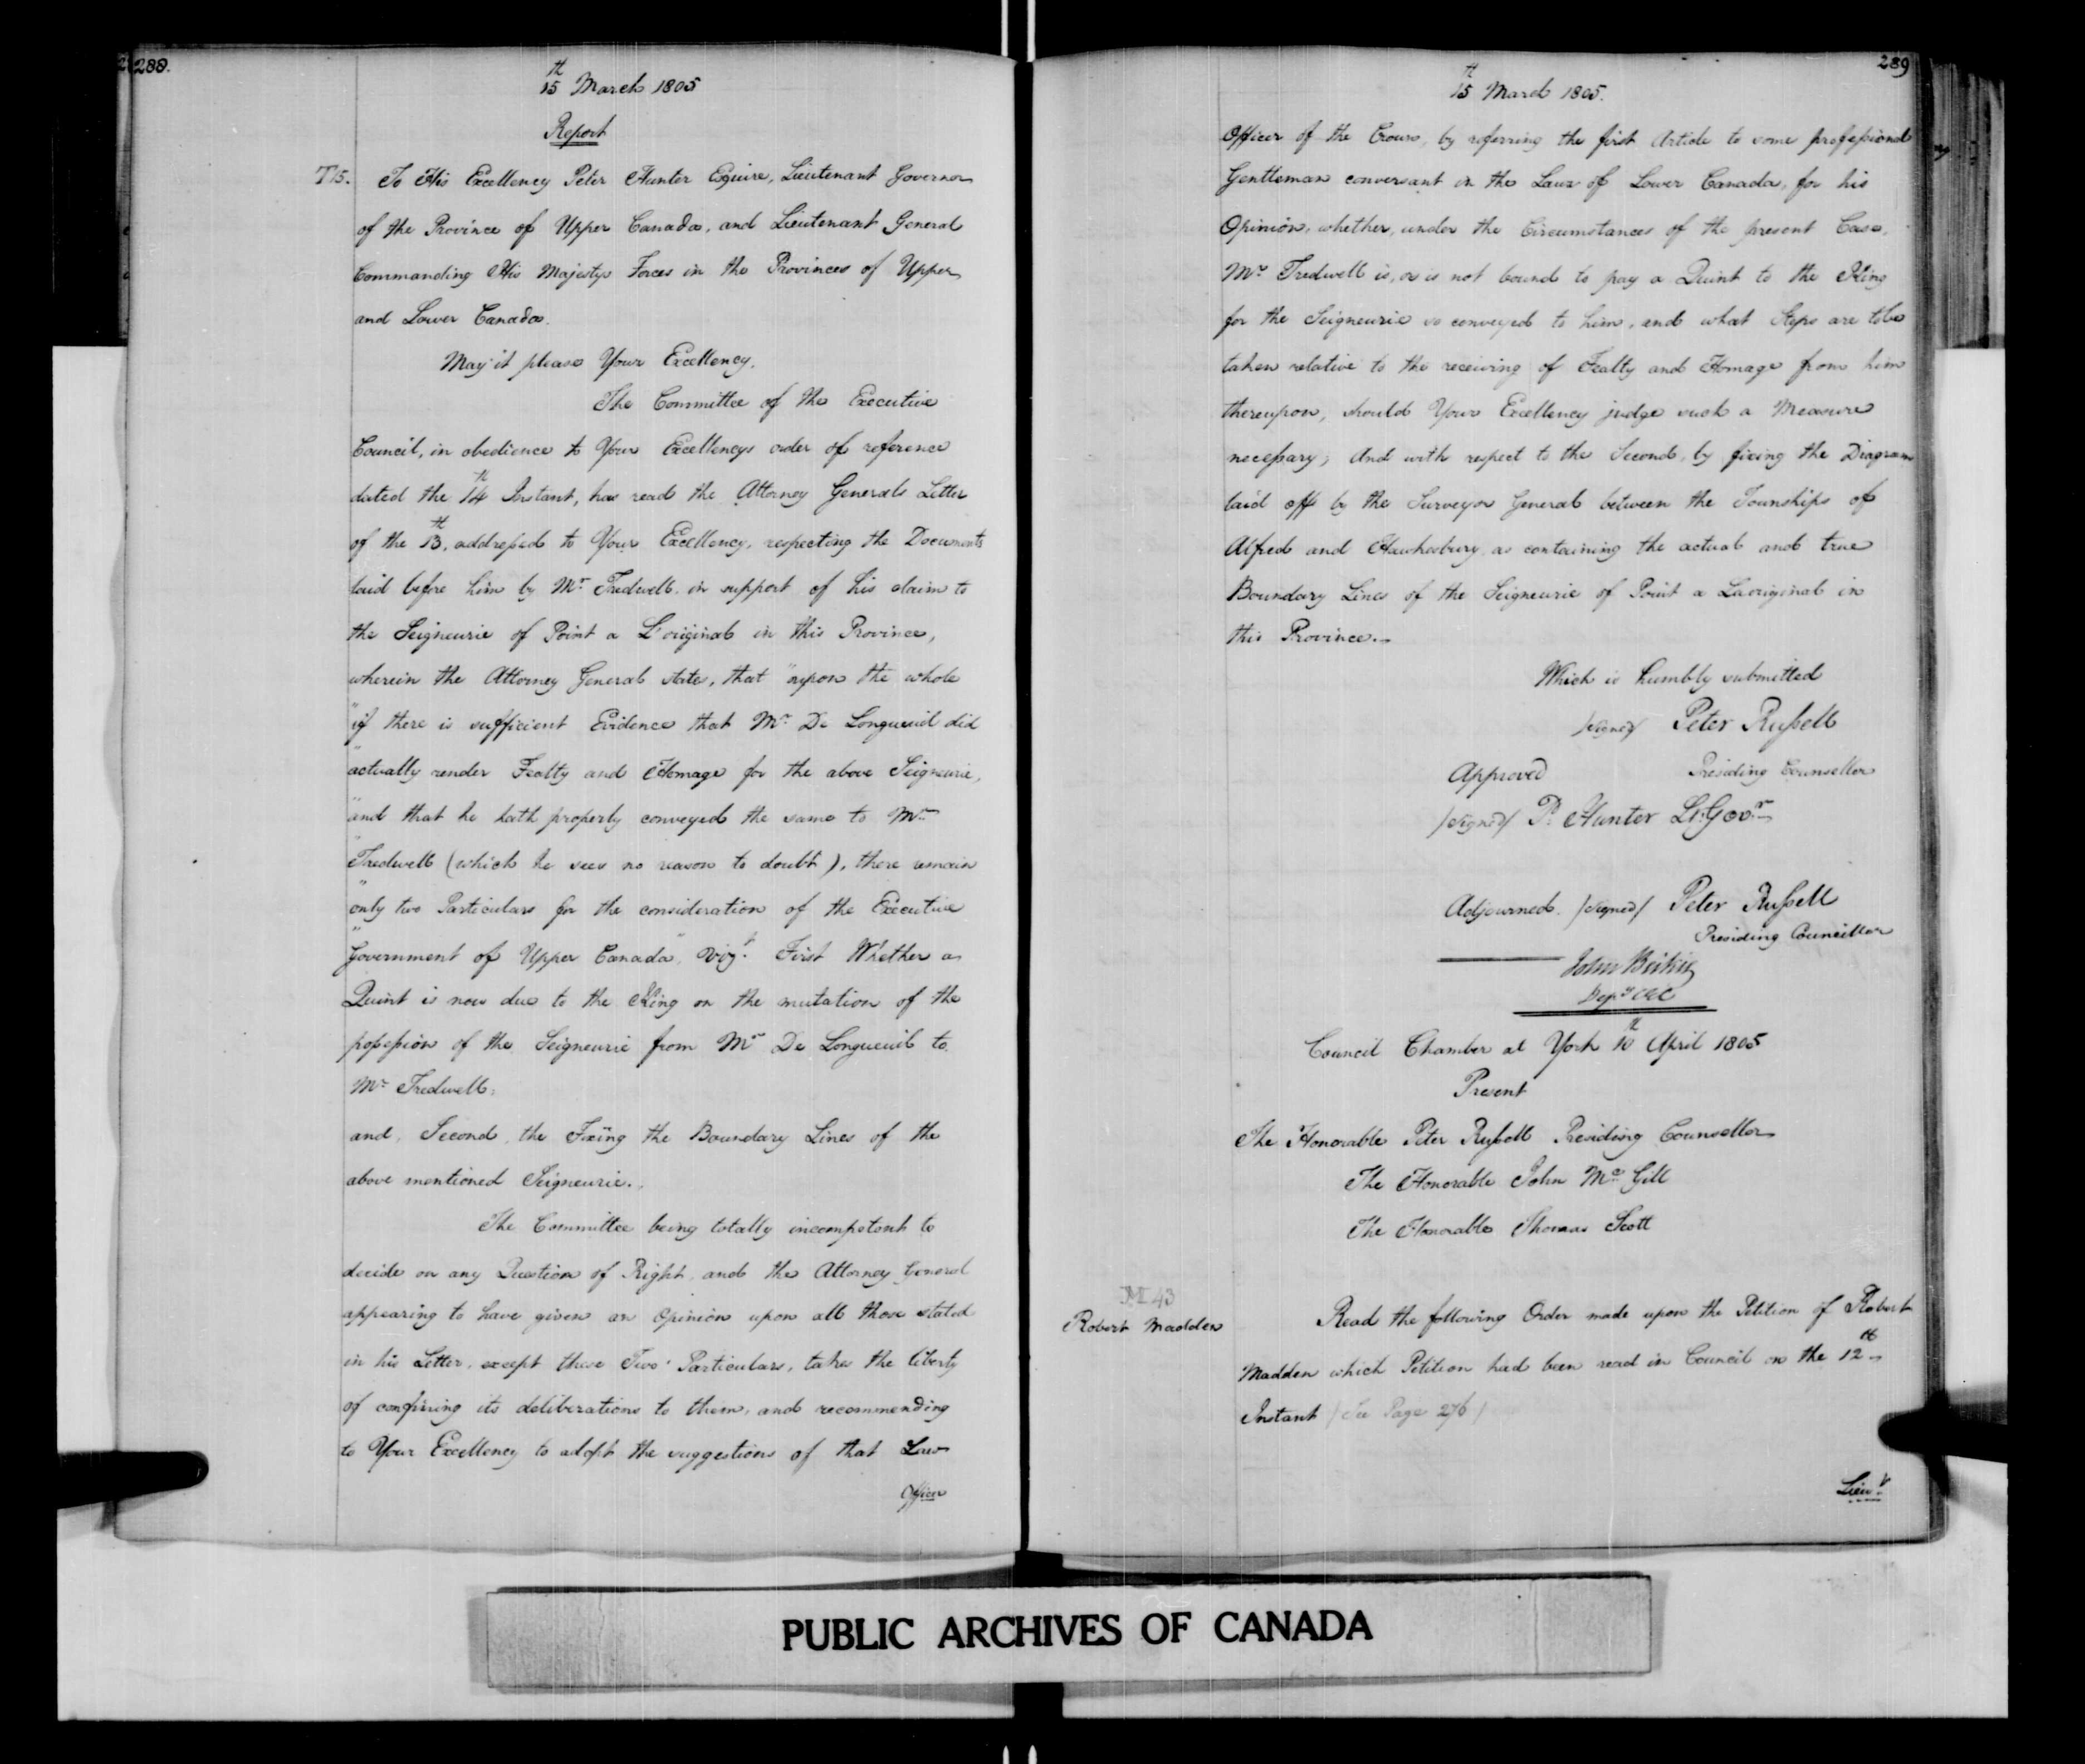 288.
15th March 1805
Report
T 15. To His Excellency Peter Hunter Esquire, Lieutenant Governor
of the Province of Upper Canada, and Lieutenant General
Commanding His Majestys Forces in the Provinces of Upper
and Lower Canada.
May it please Your Excellency.
The Committee of the Executive
Council, in obedience to Your Excellencys order of reference
dated the 14th Instant, has read the Attorney Generals Letter
of the 13th, addressed to Your Excellency, respecting the Documents
laid before him by Mr Tredwell in support of his claim to
the Seigneurie of Point a L'original in this Province,
wherein the Attorney General states, that "upon the whole
"if there is sufficient Evidence that Mr De Longueuil did
"actually render Fealty and Homage for the above Seigneurie,
"and that he hath properly conveyed the same to Mr
"Tredwell (which he sees no reason to doubt), there remain
"only two Particulars for the consideration of the Executive
"Government of Upper Canada" Vizt. First Whether a
Quint is now due to the King on the mutation of the
possession of the Seigneurie from Mr De Longueuil to
Mr Tredwell,
and, Second, the Fixing the Boundary Lines of the
above mentioned Seigneurie.
The Committee being totally incompetent to
decide on any Question of Right, and the Attorney General
appearing to have given an Opinion upon all those stated
in his Letter, except these Two Particulars, takes the liberty
of confining its deliberations to them, and recommending
to Your Excellency to adopt the suggestions of that Law
Officer
289
15th March 1805.
Officer of the Crown, by referring the first Article to some professional
Gentleman conversant in the Laws of Lower Canada, for his
Opinion, whether, under the Circumstances of the present Case,
Mr Tredwell is, or is not bound to pay a Quint to the King
for the Seigneurie so conveyed to him, and what Steps are to be
taken relative to the receiving of Fealty and Homage from him
thereupon, should Your Excellency judge such a Measure
necessary; And with respect to the Second, by fixing the Diagram
laid off by the Surveyor General between the Townships of
Alfred and Hawkesbury as containing the actual and true
Boundary Lines of the Seigneurie of Point a Laoriginal in
this Province.
Which is humbly submitted
/signed/ Peter Russell
Approved Presiding Counsellor
/signed/ P. Hunter Lt. Govr.
Adjourned. /signed/ Peter Russell
Presiding Councillor
John Beikie
Depy CEC
Council Chamber at York 10th April 1805
Present
The Honorable Peter Russell Presiding Counsellor
The Honorable John McGill
The Honorable Thomas Scott
M 43
Robert Madden
Read the following Order made upon the Petition of Robert
Madden which Petition had been read in Council on the 12th
Instant / See Page 276 /
Lieut
PUBLIC ARCHIVES OF CANADA